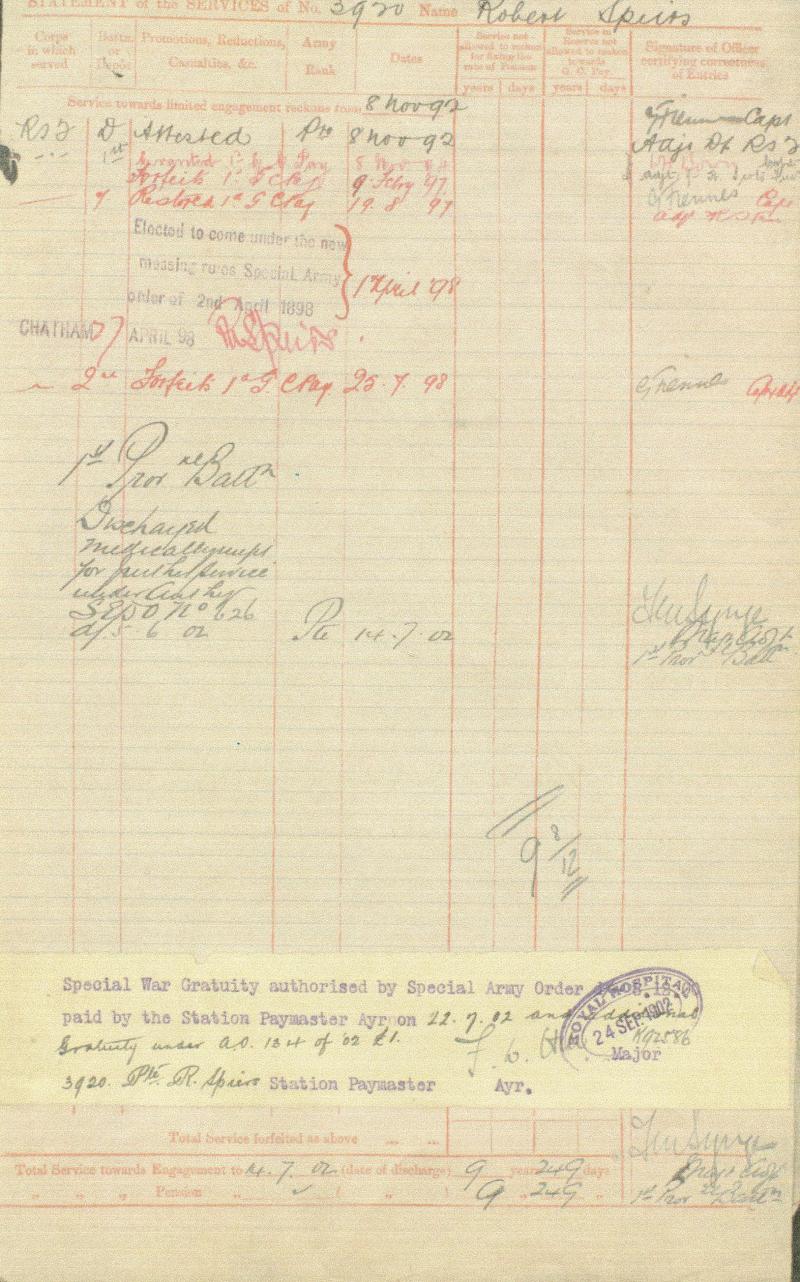 STATEMENT of the SERVICES of No. 3920 Name Robert Spiers
Corps in which served
Battn. or Depôt
Promotions, Reductions, Casualties, &c.
Army Rank
Dates
Service not allowed to reckon for fixing the rate of Pension
years days
Service in Reserve not allowed to reckon towards G. C. Pay
years days
Signature of Officer certifying correctness of Entries
Service towards limited engagement reckons from 8 Nov 92
RSF D Attested Pte 8 Nov 92 Capt
Adjt Dt RSF
1st Granted 1d G C Pay 8 Nov 94
Forfeits 1d G C Pay 9 Feby 97
" Restored 1d G C Pay 19. 8 97 Capt
Elected to come under the new
messing rules Special Army
order of 2nd April 1898
1 April '98
CHATHAM 7 APRIL 98 R Spiers
2nd Forfeits 1d G. C Pay 25. 7. 98
1st Provnl Battn
Discharged
medically unfit
for further service
under Authy
No 626
d/ 5 6 02 Pte 14. 7. 02
1st Prov Battn
9 8/12
Special War Gratuity authorised by Special Army Order
paid by the Station Paymaster Ayr on 22.7.02 and additional
Gratuity under A.O. 134 of '02 £1.
ROYAL HOSPITAL
24 SEP. 1902
Major
3920. Pte R. Spiers Station Paymaster Ayr.
Total Service forfeited as above ... ...
Total Service towards Engagement to 14. 7. 02 (date of discharge) 9 years 249 days
" " " Pension " ( " ) 9 " 249 "
1st Prov Battn